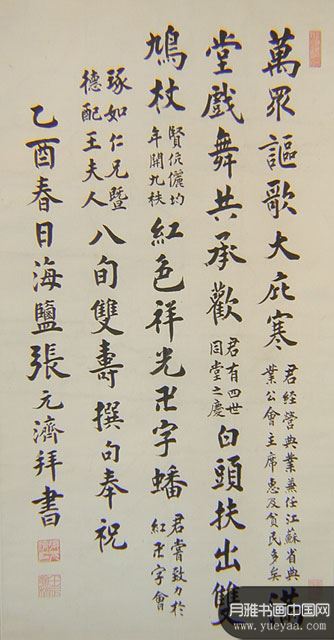 萬眾謳歌大庇寒
君經營典業兼任江蘇省典
業公會主席惠及貧民多矣
滿
堂戲舞共承歡
君有四世
同堂之慶
白頭扶出雙
鳩杖
賢伉儷均
年開九秩
紅色祥光卍字蟠
君嘗致力於
紅卍字會
琢如仁兄暨
德配王夫人
八旬雙壽撰句奉祝
乙酉春日海鹽張元濟拜書
月雅书画中国网
www.yueyaa.com